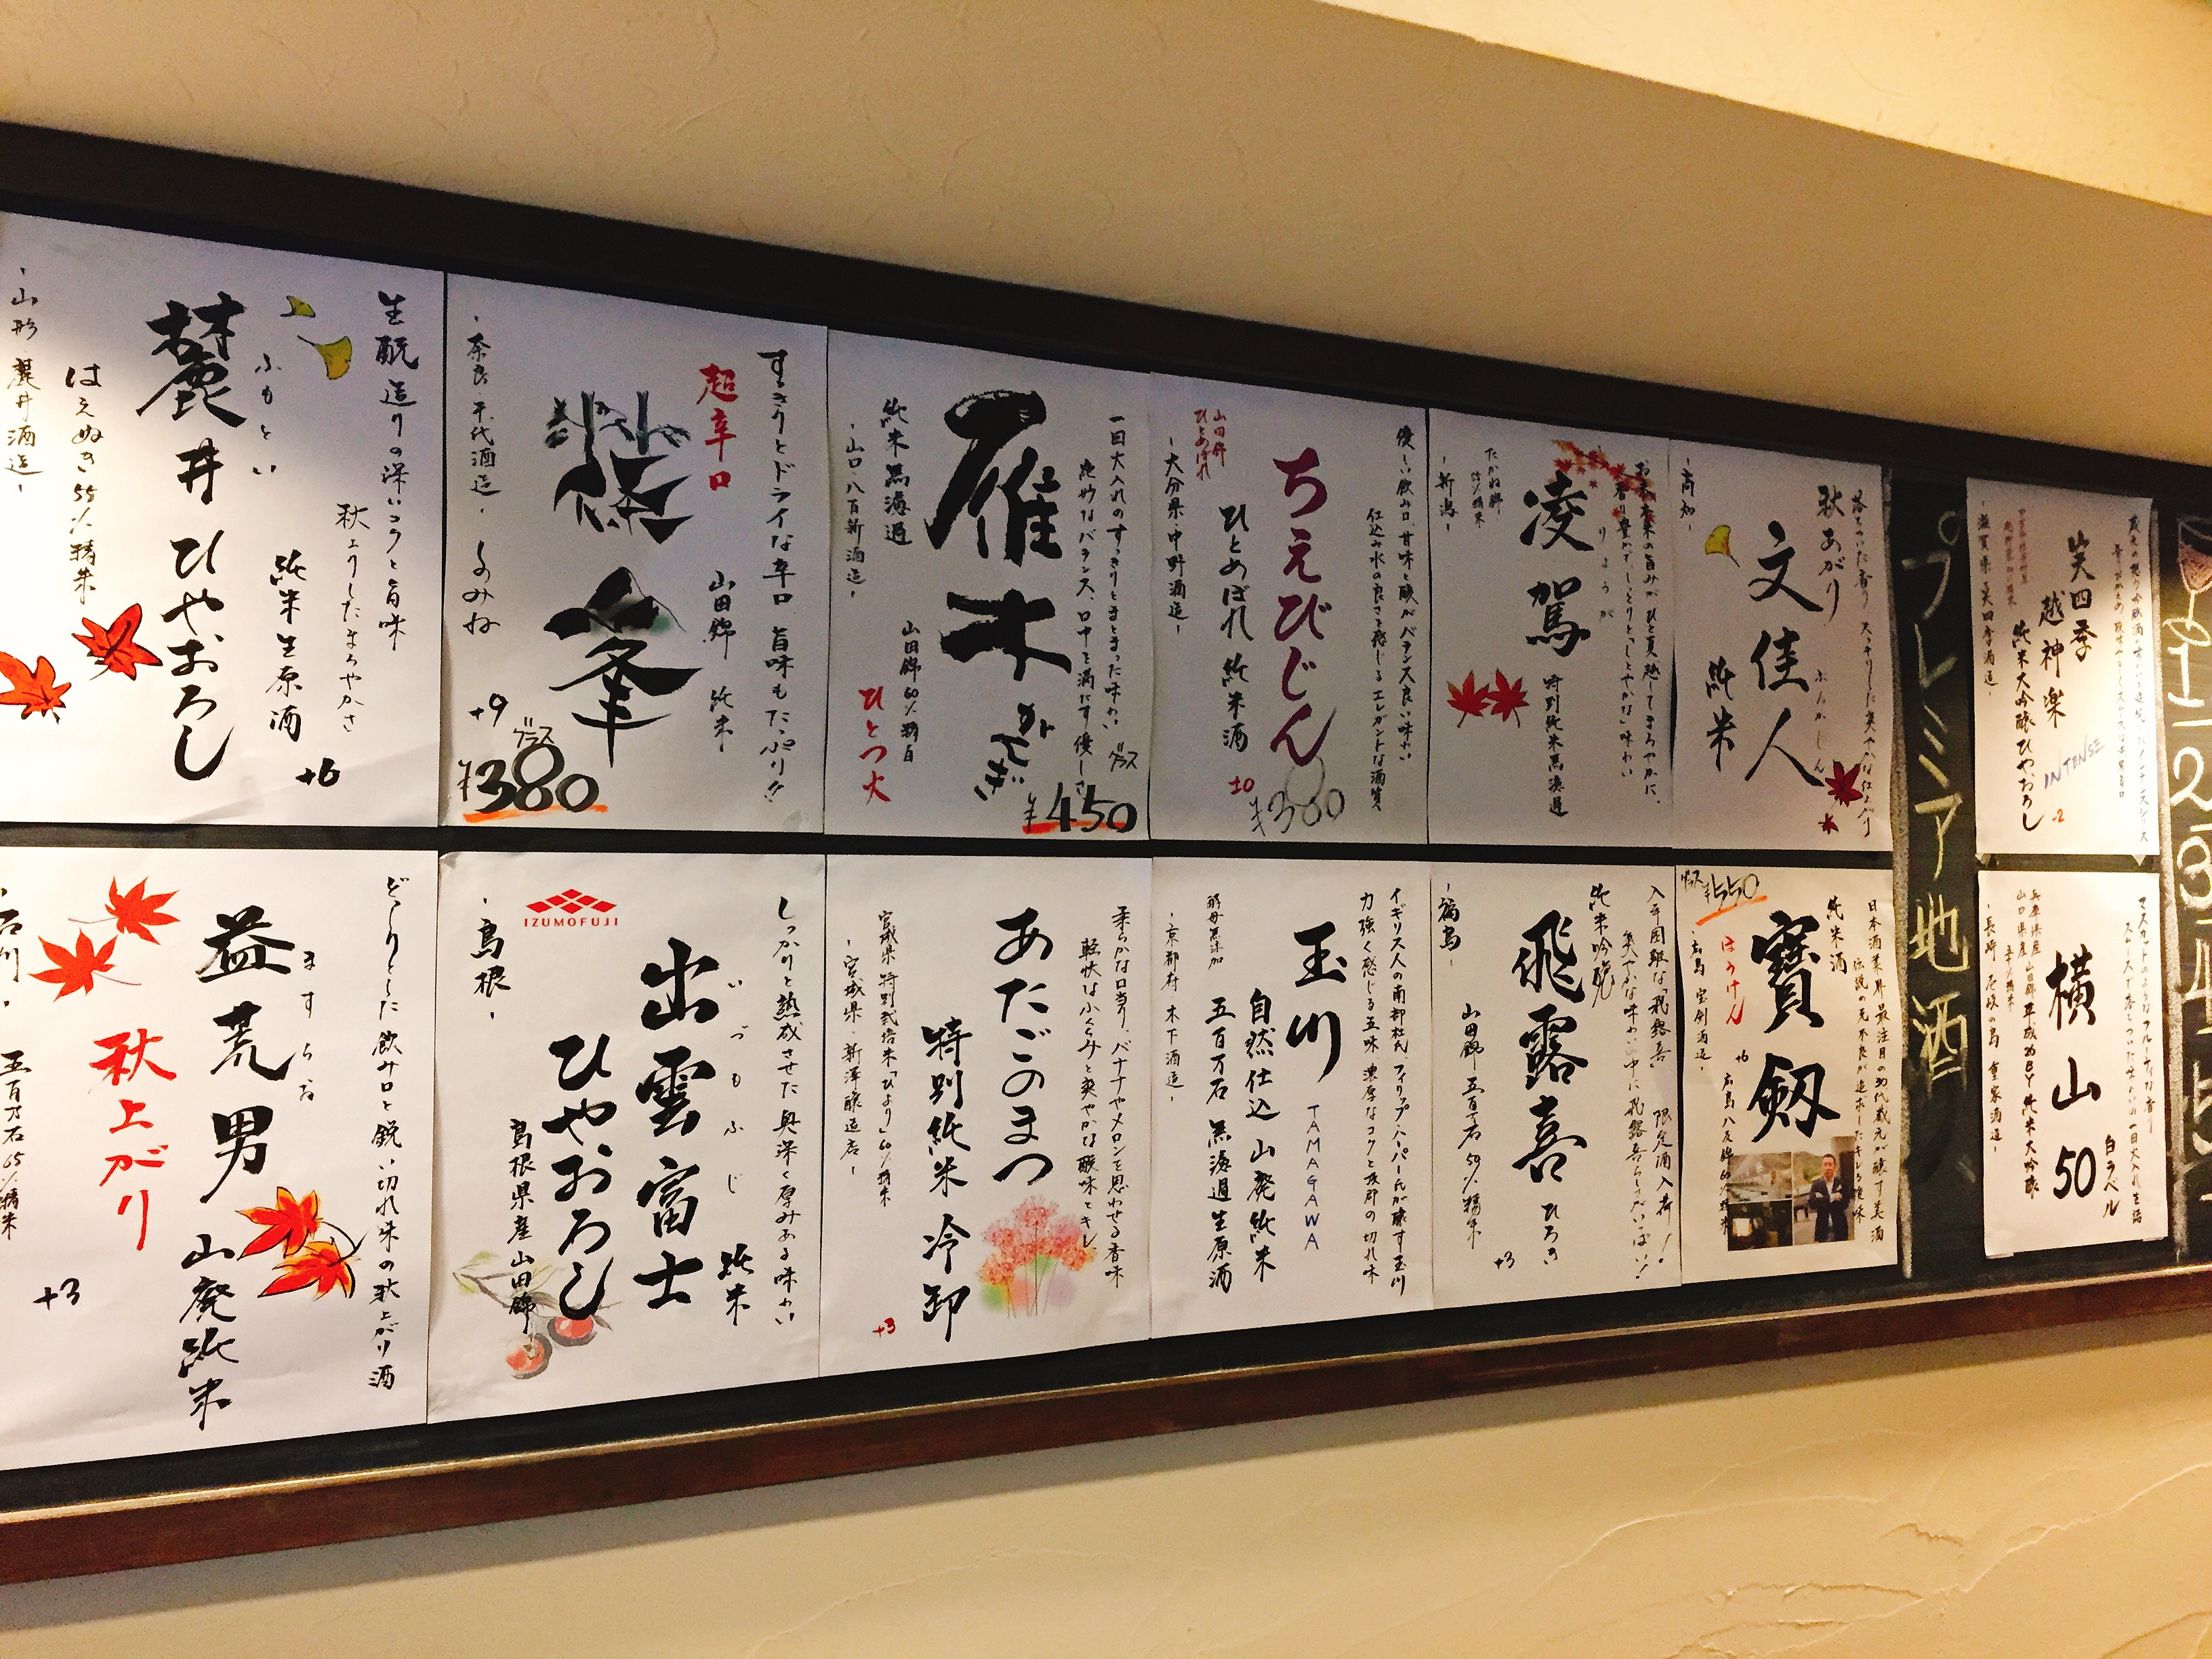 生酛造りの深いコクと旨味
秋上りしたまろやかさ
純米生原酒
+6
ふもとい
麓井ひやおろし
はえぬき55%精米
-山形 麓井酒造-
すっきりとドライな辛口 旨味もたっぷり!!
超辛口
山田錦 純米
篠峯
しのみね
+9
グラス
¥380
-奈良・千代酒造-
一回火入れのすっきりとまとまった味わい
絶妙なバランス、口中を満たす優しさ
雁木
がんぎ
純米無濾過
山田錦60%精白
ひとつ火
-山口・八百新酒造-
グラス
¥450
優しい飲み口、甘味と酸がバランス良い味わい
仕込み水の良さを感じるエレガントな酒質
ちえびじん
ひとめぼれ 純米酒
山田錦
ひとめぼれ
±0
¥380
-大分県・中野酒造-
お米本来の旨みがひと夏越してまろやかに、
香り豊かでしっとりと「しとやかな」味わい
りょうが
凌駕
特別純米無濾過
たかね錦
-新潟-
落ちついた香り スッキリした爽やかな仕上り
秋あがり
文佳人
ぶんかじん
純米
-高知-
プレミア地酒
笑四季
越神楽
純米大吟醸ひやおろし
INTENSE
-2
-滋賀県 笑四季酒造-
どっしりとした飲み口と鋭い切れ味の秋上がり酒
ますらお
益荒男
山廃純米
秋上がり
五百万石65%精米
+3
石川
しっかりと熟成させた奥深く厚みある味わい
いづもふじ
出雲富士
純米
ひやおろし
島根県産山田錦
IZUMOFUJI
-島根-
柔らかな口当り、バナナやメロンを思わせる香味
軽快なふくらみと爽やかな酸味とキレ
あたごのまつ
特別純米 冷卸
宮城県特別栽培米「ひより」60%精米
+3
-宮城県・新澤醸造店-
イギリス人の南部杜氏、フィリップ・ハーパー氏が醸す玉川
力強く感じる五味 濃厚なコクと抜群の切れ味
玉川
TAMAGAWA
自然仕込 山廃純米
五百万石 無濾過生原酒
酵母無添加
-京都府 木下酒造-
入手困難な「飛露喜」 限定酒入荷!
純米吟醸
飛露喜
ひろき
山田錦 五百万石 50%精米
+3
-福島-
日本酒業界最注目の30代蔵元が醸す美酒
伝説の元不良が追求したキレる後味
純米酒
寶剱
ほうけん
+6
広島八反錦60%精米
-広島 宝剣酒造-
グラス
¥550
マスカットのようなフルーティな香り
横山50
白ラベル
兵庫県産
山口県産
山田錦 平成26BY 純米大吟醸
-長崎 壱岐の島 重家酒造-